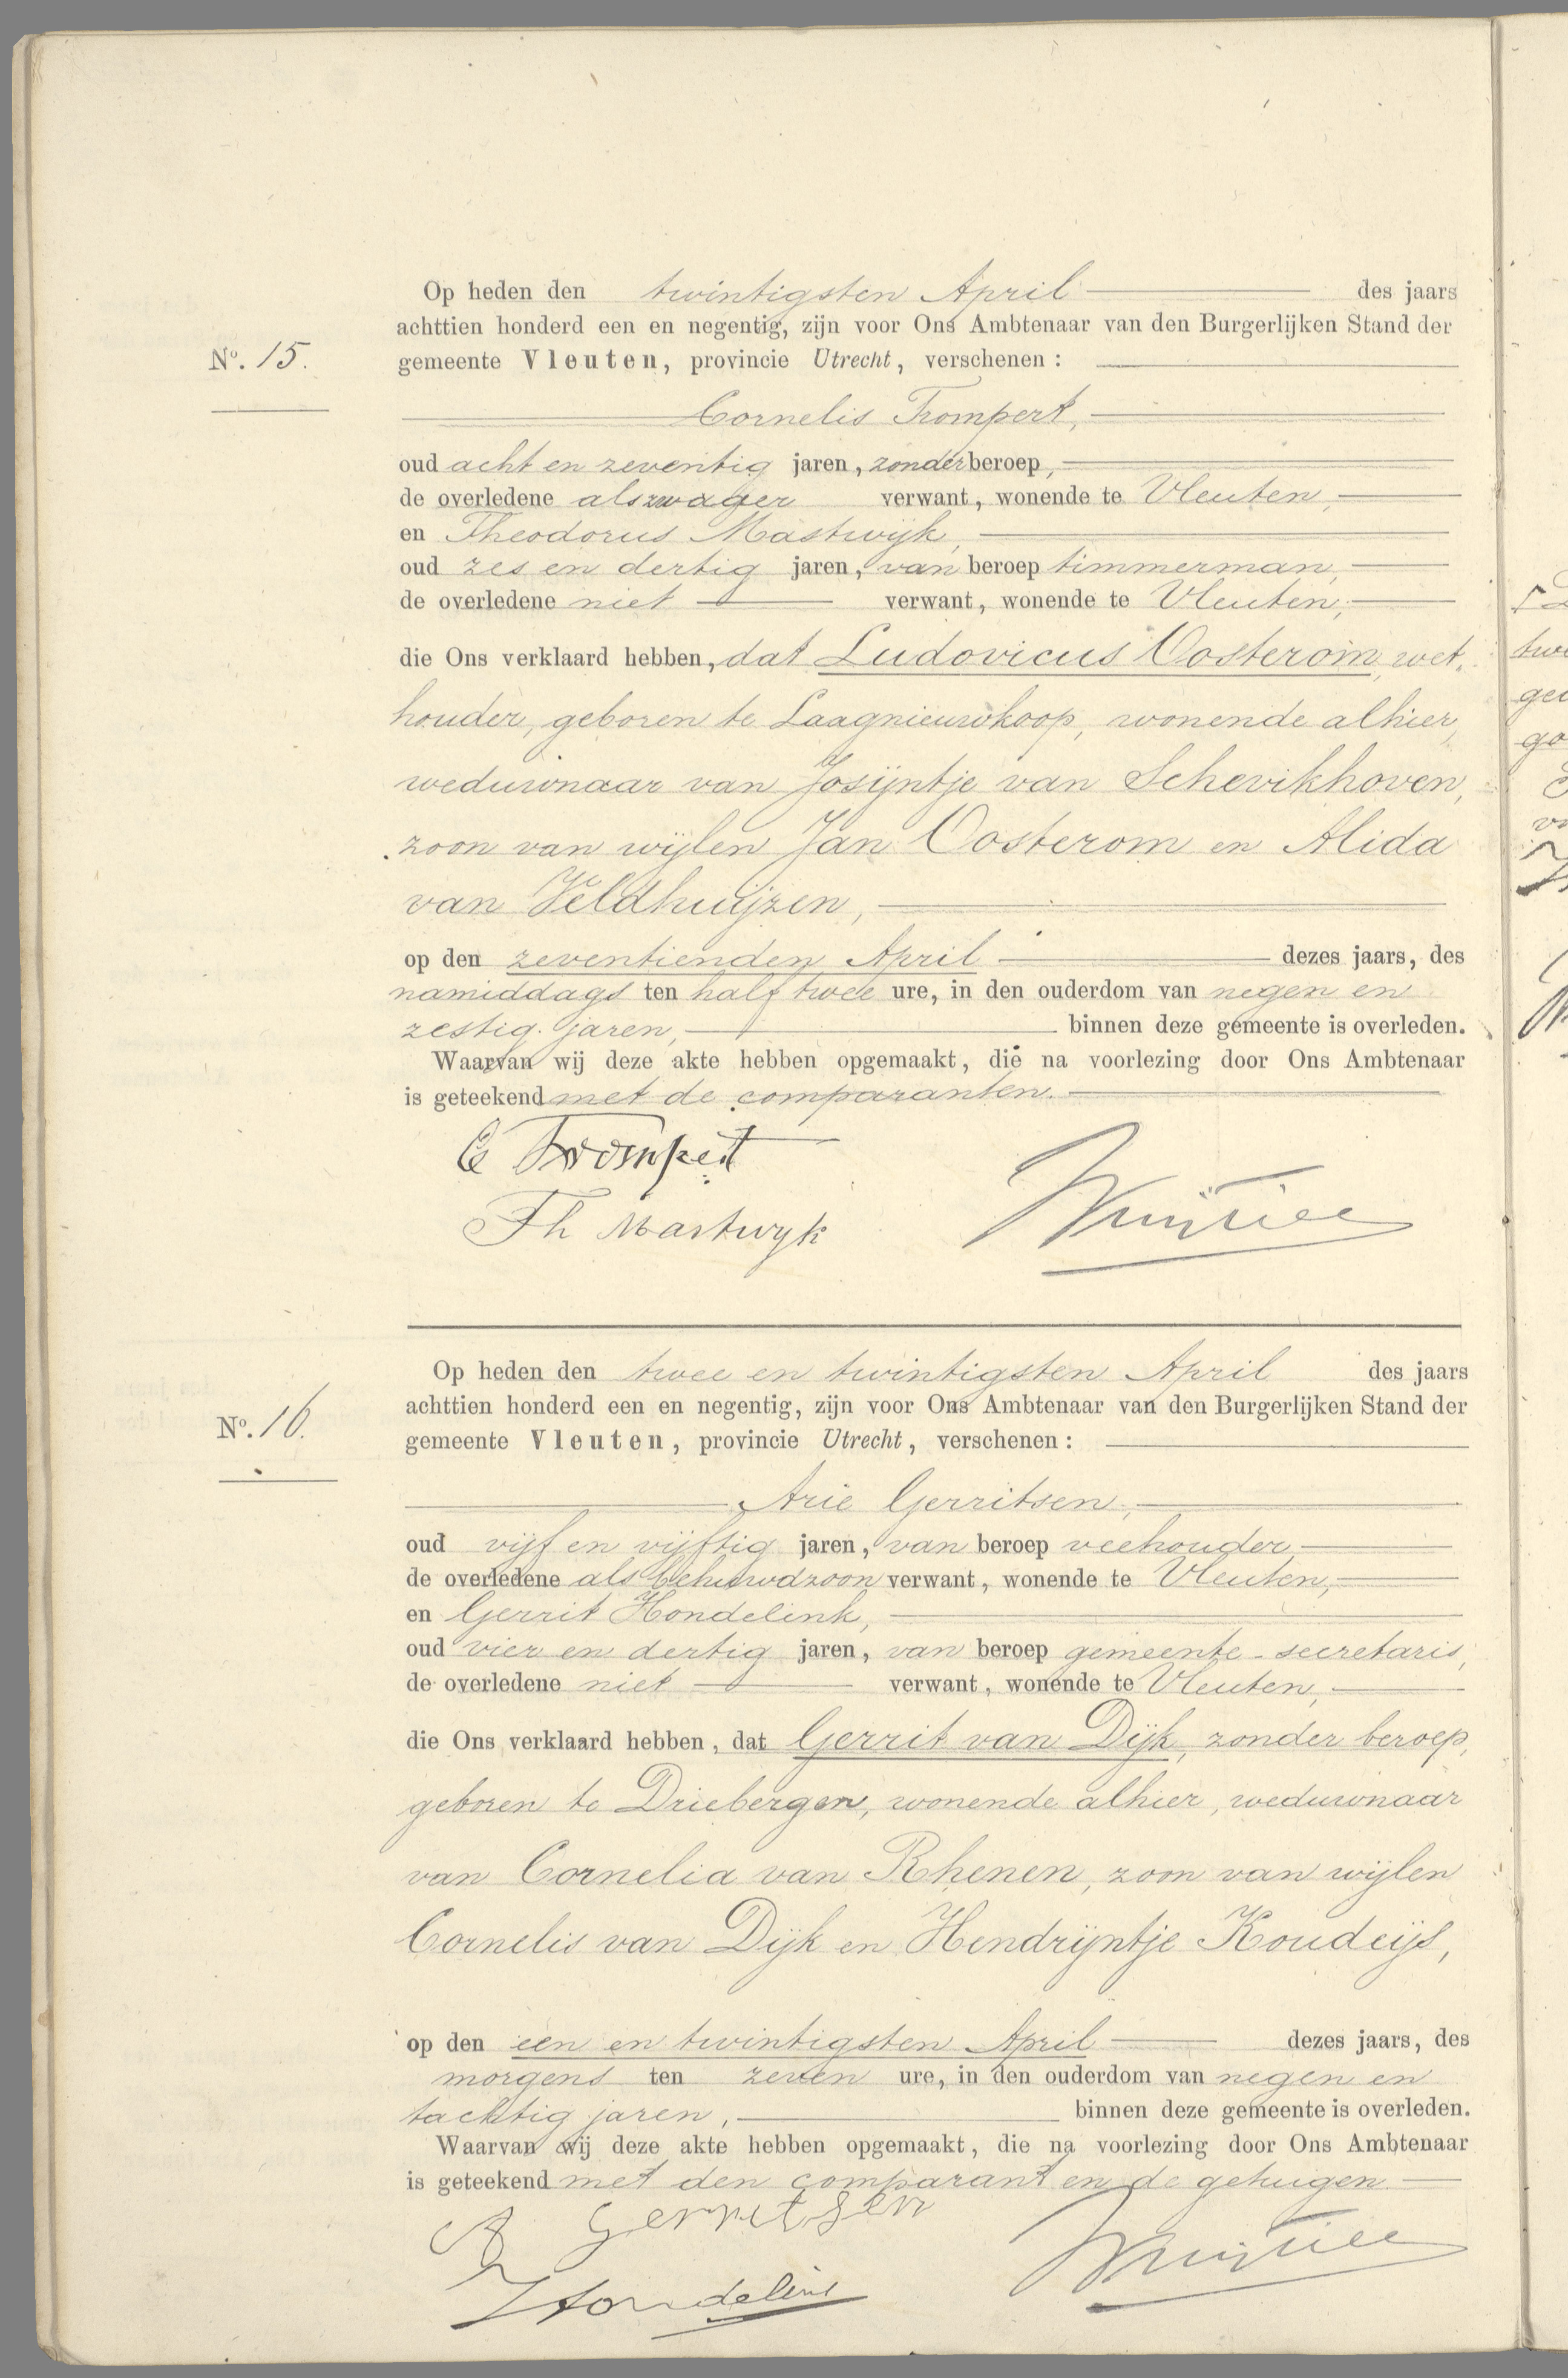 Op heden den twintigsten April des jaars
achttien honderd een en negentig, zijn voor Ons Ambtenaar van den Burgerlijken Stand der
No. 15.
gemeente Vleuten, provincie Utrecht, verschenen:
Cornelis Trompert,
oud acht en zeventig jaren, zonder beroep,
de overledene als zwager verwant, wonende te Vleuten,
en Theodorus Mastwijk,
oud zes en dertig jaren, van beroep timmerman,
de overledene niet verwant, wonende te Vleuten,
die Ons verklaard hebben, dat Ludovicus Oosterom, wet-
houder, geboren te Laagnieuwkoop, wonende alhier,
weduwnaar van Josijntje van Schevikhoven,
zoon van wijlen Jan Oosterom en Alida
van Veldhuijzen,
op den zeventienden April dezes jaars, des
namiddags ten half twee ure, in den ouderdom van negen en
zestig jaren, binnen deze gemeente is overleden.
Waarvan wij deze akte hebben opgemaakt, die na voorlezing door Ons Ambtenaar
is geteekend met de comparanten.
C Trompert
Th Mastwyk
Op heden den twee en twintigsten April des jaars
achttien honderd een en negentig, zijn voor Ons Ambtenaar van den Burgerlijken Stand der
No. 16.
gemeente Vleuten, provincie Utrecht, verschenen:
Arie Gerritsen,
oud vijf en vijftig jaren, van beroep veehouder
de overledene als behuwdzoon verwant, wonende te Vleuten,
en Gerrit Hondelink,
oud vier en dertig jaren, van beroep gemeente-secretaris,
de overledene niet verwant, wonende te Vleuten,
die Ons verklaard hebben, dat Gerrit van Dijk, zonder beroep,
geboren te Driebergen, wonende alhier, weduwnaar
van Cornelia van Rhenen, zoon van wijlen
Cornelis van Dijk en Hendrijntje Koudijs,
op den een en twintigsten April dezes jaars, des
morgens ten zeven ure, in den ouderdom van negen en
tachtig jaren, binnen deze gemeente is overleden.
Waarvan wij deze akte hebben opgemaakt, die na voorlezing door Ons Ambtenaar
is geteekend met den comparant en de getuigen.
A Gerritsen
Hondelink